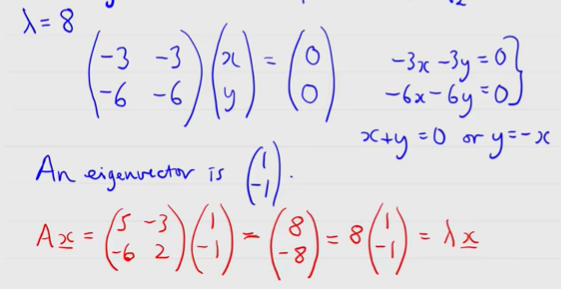 λ = 8
(-3 -3; -6 -6) (x; y) = (0; 0)
-3x - 3y = 0
-6x - 6y = 0 }
x + y = 0 or y = -x
An eigenvector is (1; -1).
Ax = (5 -3; -6 2) (1; -1) = (8; -8) = 8 (1; -1) = λx